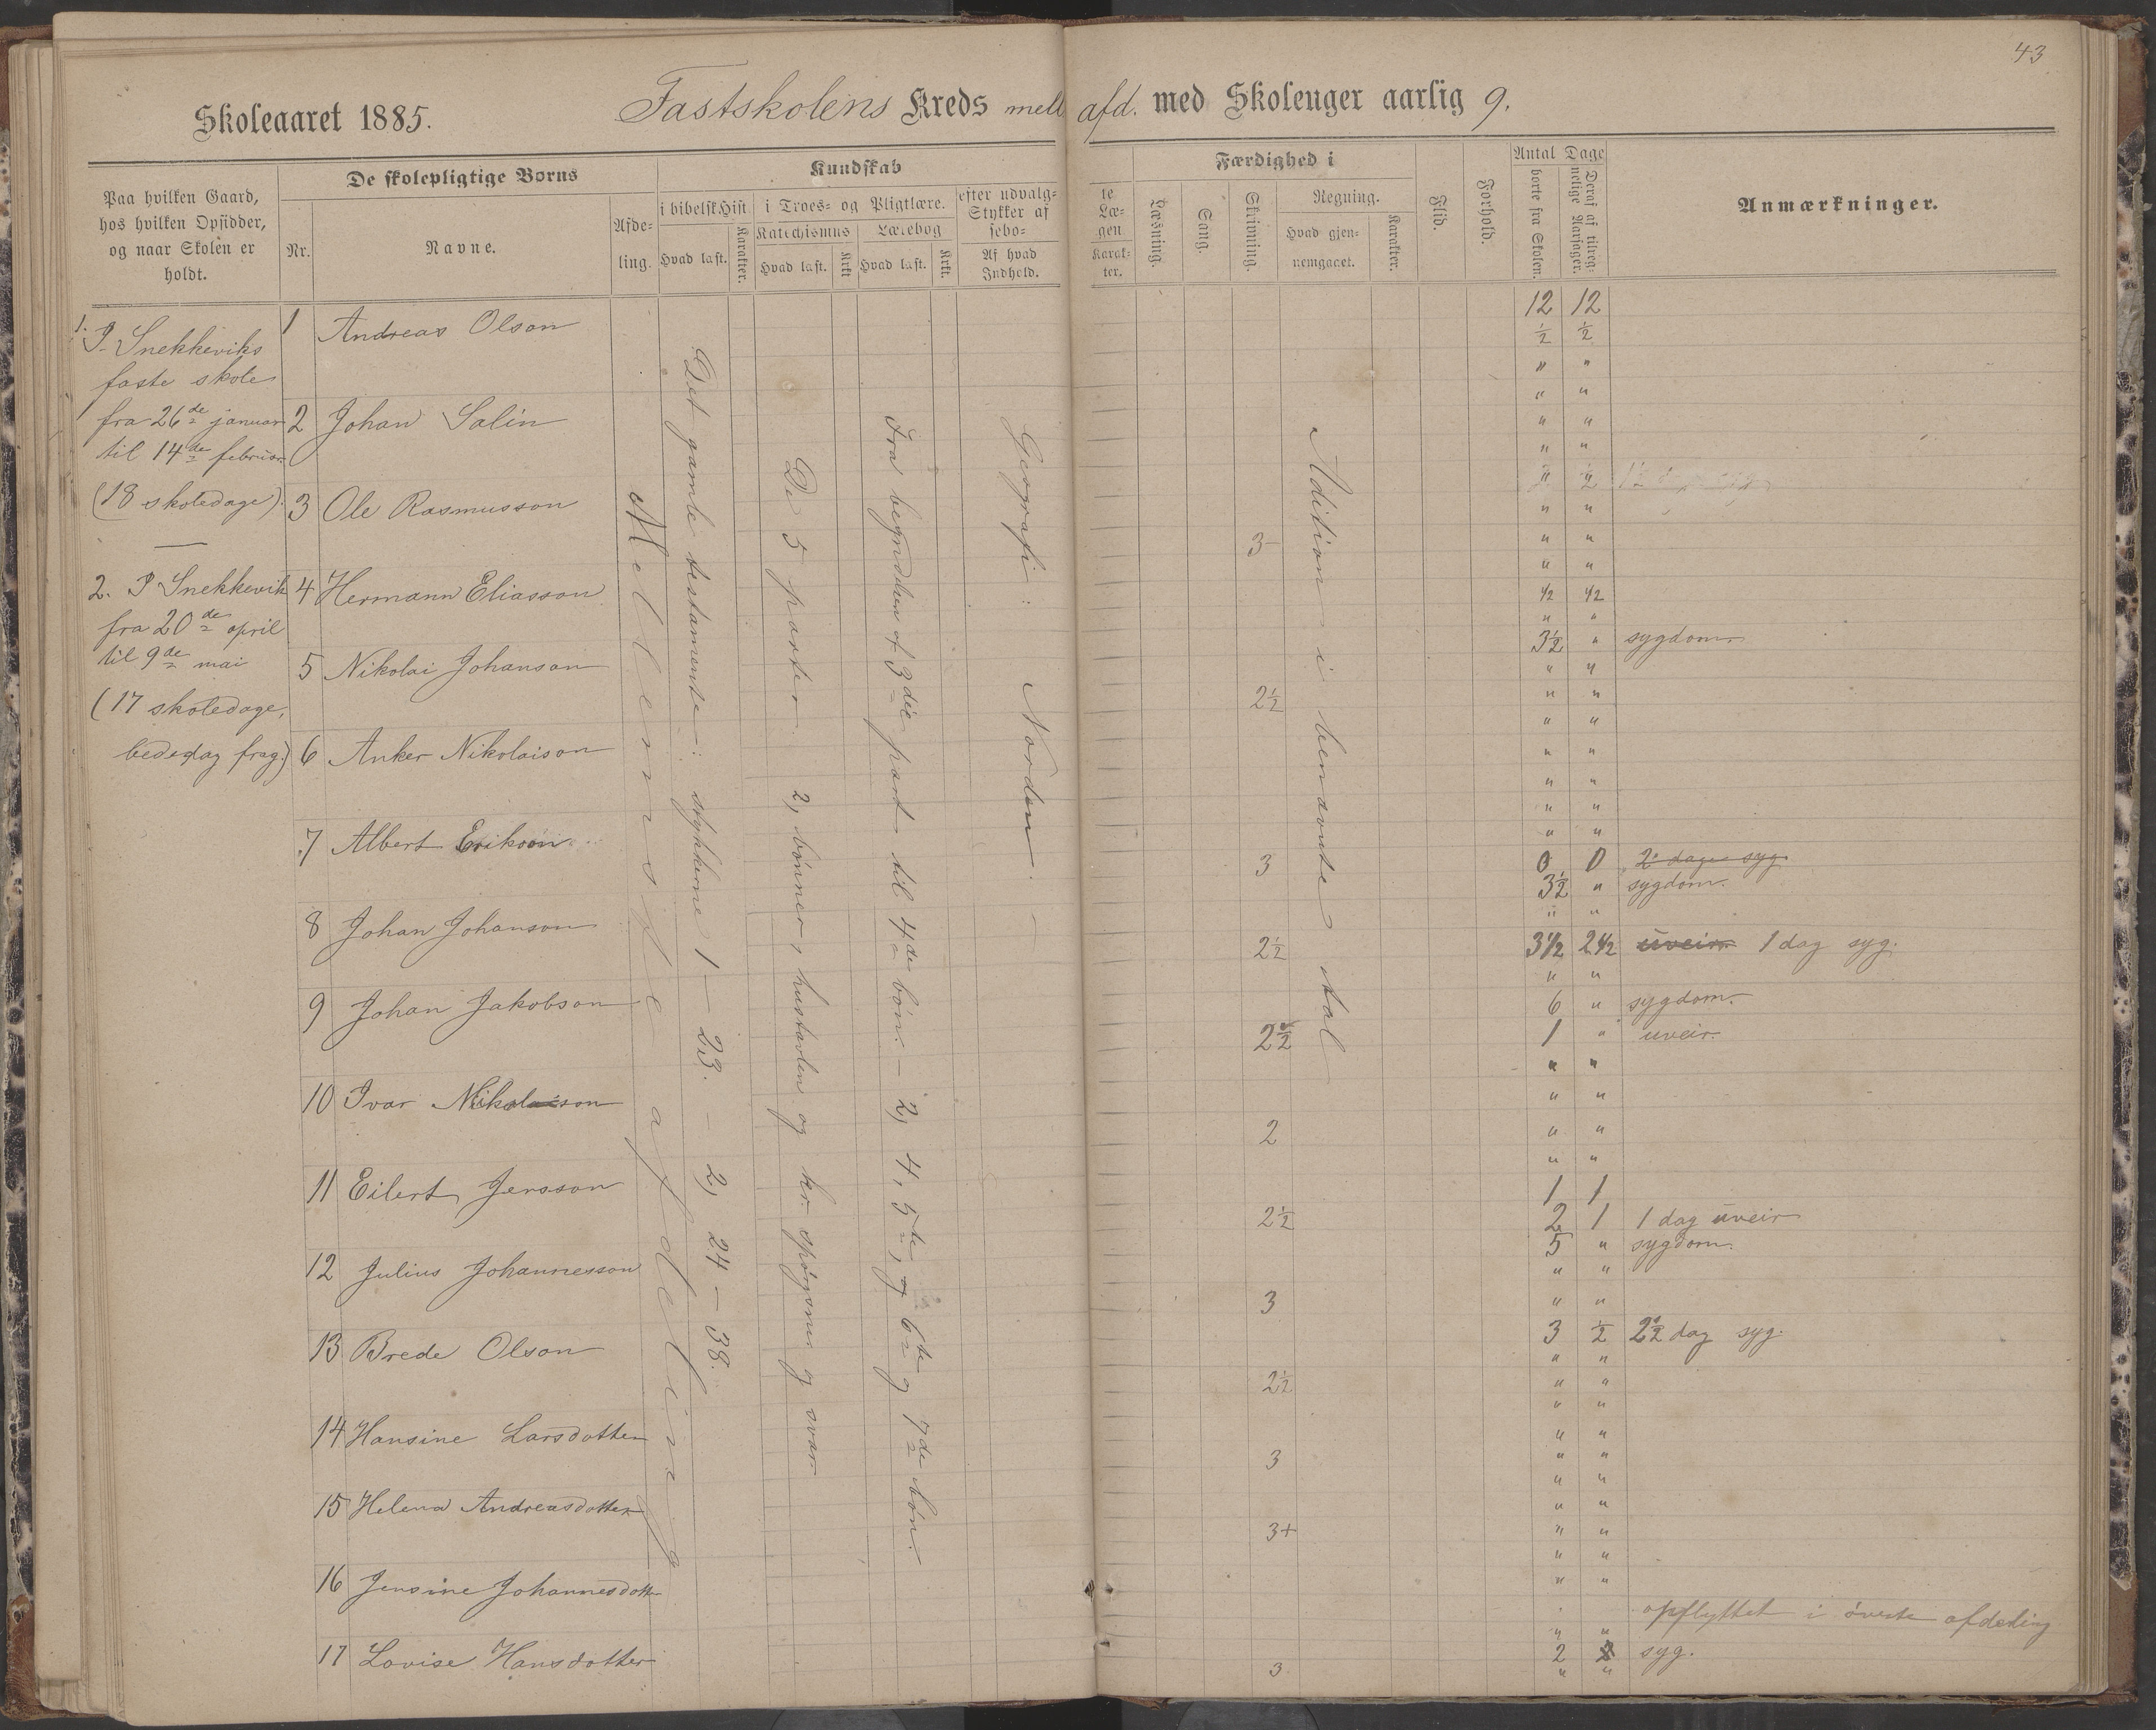 43
Skoleaaret 1885.
Fastskolens Kreds mell afd. med Skoleuger aarlig 9.
Paa hvilken Gaard,
hos hvilken Opsidder,
og naar Skolen er
holdt.
De skolepligtige Børns
Nr.
Navne.
Afde-
ling.
Kundskab
i bibelsk Hist.
Hvad læst.
Karakter.
i Troes- og Pligtlære.
Katechismus
Hvad læst.
Krkt
Lærebog
Hvad læst.
Krkt.
efter udvalg-
Stykker af
sebo-
Af hvad
Indhold.
te
Læ-
gen
Karak-
ter.
Færdighed i
Læsning.
Sang.
Skrivning.
Regning.
Hvad gjen-
nemgaaet.
Karakter.
Flid.
Forhold.
Antal Dage
borte fra Skolen.
Deraf af tilreg-
nelige Aarsager.
Anmærkninger.
1.
I Snekkeviks
faste skole
fra 26de januar
til 14de februar
(18 skoledage).
2. I Snekkevik
fra 20de april
til 9de mai
(17 skoledage,
bededag frag.)
1 Andreas Olson
2 Johan Salin
3 Ole Rasmusson
4 Hermann Eliasson
5 Nikolai Johanson
6 Anker Nikolaison
7 Albert Erikson
8 Johan Johanson
9 Johan Jakobson
10 Ivar Nikolaison
11 Eilert Jensson
12 Julius Johannesson
13 Brede Olson
14 Hansine Larsdotter
15 Helena Andreasdotter
16 Jensine Johannesdotter
17 Lovise Hansdotter
Mellemste afdeling
Det gamle testamente: stykkerne 1 – 23. – 2, 24 – 38.
De 5 parter. 2, bönner, hustavlen og kr. spörgsmr og svar
Fra begyndelsen af 3die part til 4de bön. – 2, 4, 5te, og 6te og 7de bön.
Geografi: Norden. –
Adition i benævnte tal
3-
2½
3
2½
2½
2
2½
3
2½
3
3+
3
12 12
½ ½
" "
" "
" "
" "
" "
" "
" "
½ ½
" "
3½ " sygdom
" "
" "
" "
" "
" "
" "
" "
0 0 2 dage syg.
3½ " sygdom.
" "
3½ 2½ uveir 1 dag syg.
" "
6 " sygdom.
1 " uveir.
" "
" "
" "
" "
1 1
2 1 1 dag uveir
5 " sygdom.
" "
" "
3 ½ 2½ dag syg.
" "
" "
" "
" "
" "
" "
" "
" "
" "
" "
opflyttet i överste afdeling
" "
2 2 syg.
" "